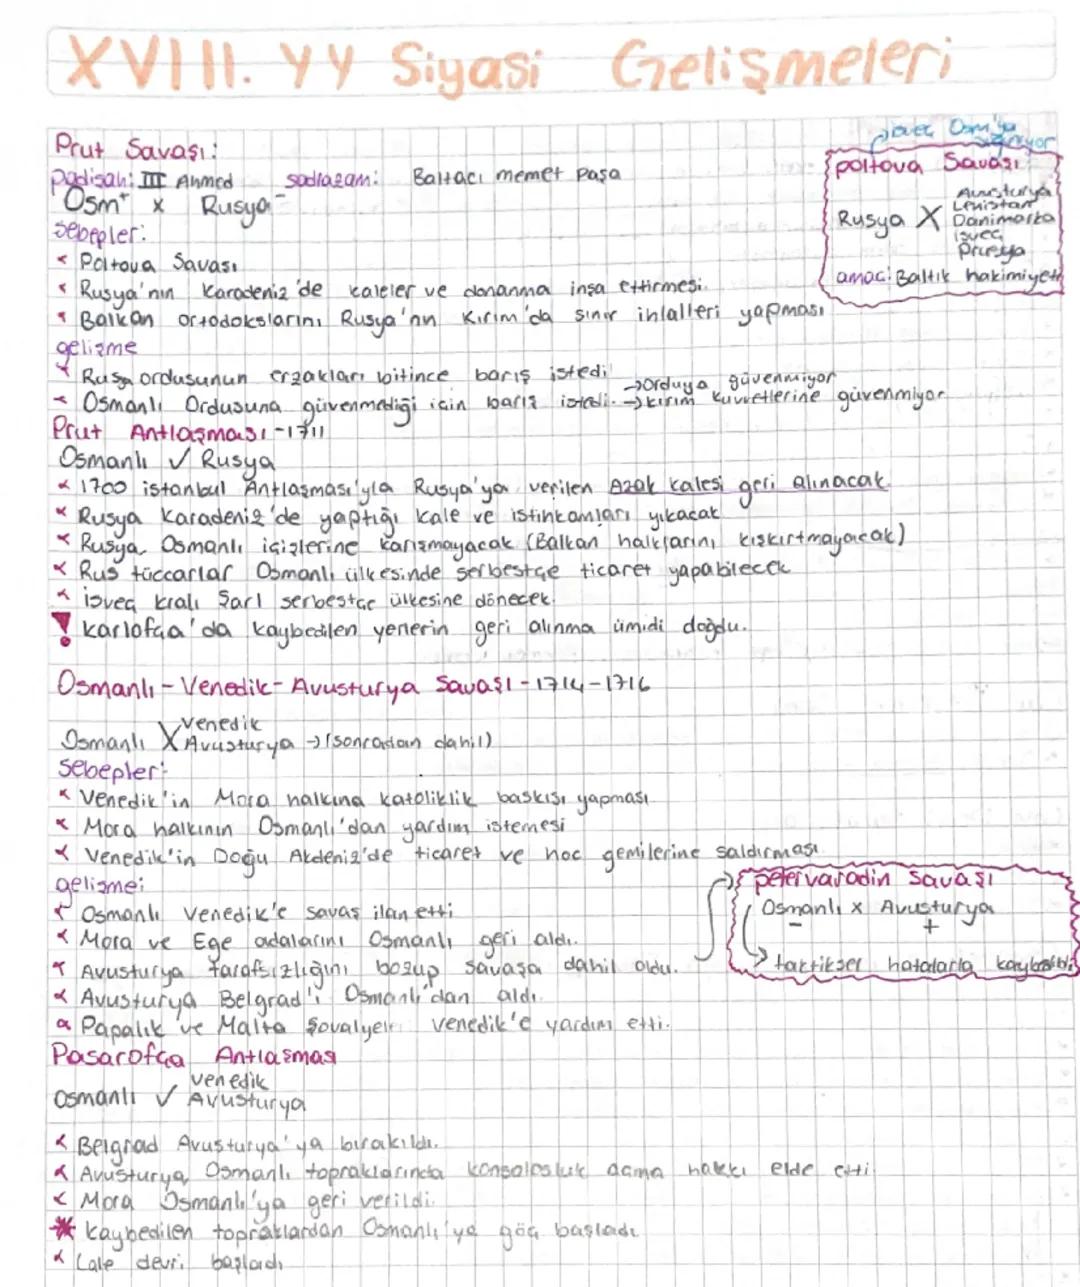 XVIII. yy Siyasi Gelişmeleri
Prut Savaşı:
padişah: III Ahmed sadrazam: Baltacı memet Paşa
Osm⁺ x Rusya⁻
sebepler:
Poltova Savaşı
Rusya'nın Karadeniz'de kaleler ve donanma inşa ettirmesi.
Balkan ortodokslarını Rusya'nın Kırım'da sınır ihlalleri yapması
İsveç Osm'ya
sığınıyor
poltova Savaşı
Rusya X Avusturya
Lehistan
Danimarka
isveç
Prusya
amaç: Baltık hakimiyeti
gelişme
Rus ordusunun erzakları bitince barış istedi
Osmanlı Ordusuna güvenmediği için barış istedi. →Orduya güvenmiyor
→Kırım kuvvetlerine güvenmiyor
Prut Antlaşması-1711
Osmanlı ✓ Rusya
1700 istanbul Antlaşması'yla Rusya'ya verilen Azak kalesi geri alınacak
Rusya Karadeniz'de yaptığı kale ve istihkamları yıkacak
Rusya Osmanlı içişlerine karışmayacak (Balkan halklarını kışkırtmayacak)
Rus tüccarlar Osmanlı ülkesinde serbestçe ticaret yapabilecek
isveç kralı Şarl serbestçe ülkesine dönecek.
! Karlofça'da kaybedilen yererin geri alınma ümidi doğdu.
Osmanlı-Venedik-Avusturya Savaşı-1714-1716
Osmanlı X venedik
Avusturya → (sonradan dahil)
sebepler:
Venedik'in Mora halkına katoliklik baskısı yapması
Mora halkının Osmanlı'dan yardım istemesi
Venedik'in Doğu Akdeniz'de ticaret ve hac gemilerine saldırması
gelişme:
Osmanlı Venedik'e savaş ilan etti
Mora ve Ege adalarını Osmanlı geri aldı.
Avusturya tarafsızlığını bozup savaşa dahil oldu.
Avusturya Belgrad'ı Osmanlı'dan aldı.
Papalık ve Malta Şovalyeleri venedik'e yardım etti.
petervaradin Savaşı
Osmanlı x Avusturya
- +
→ taktiksel hatalarla kaybettik
Pasarofça Antlaşması
Osmanlı ✓ venedik
Avusturya
Belgrad Avusturya'ya bırakıldı.
Avusturya Osmanlı topraklarında konsolosluk açma hakkı elde etti
Mora Osmanlı'ya geri verildi.
* kaybedilen topraklardan Osmanlı'ya göç başladı
Lale devri başladı